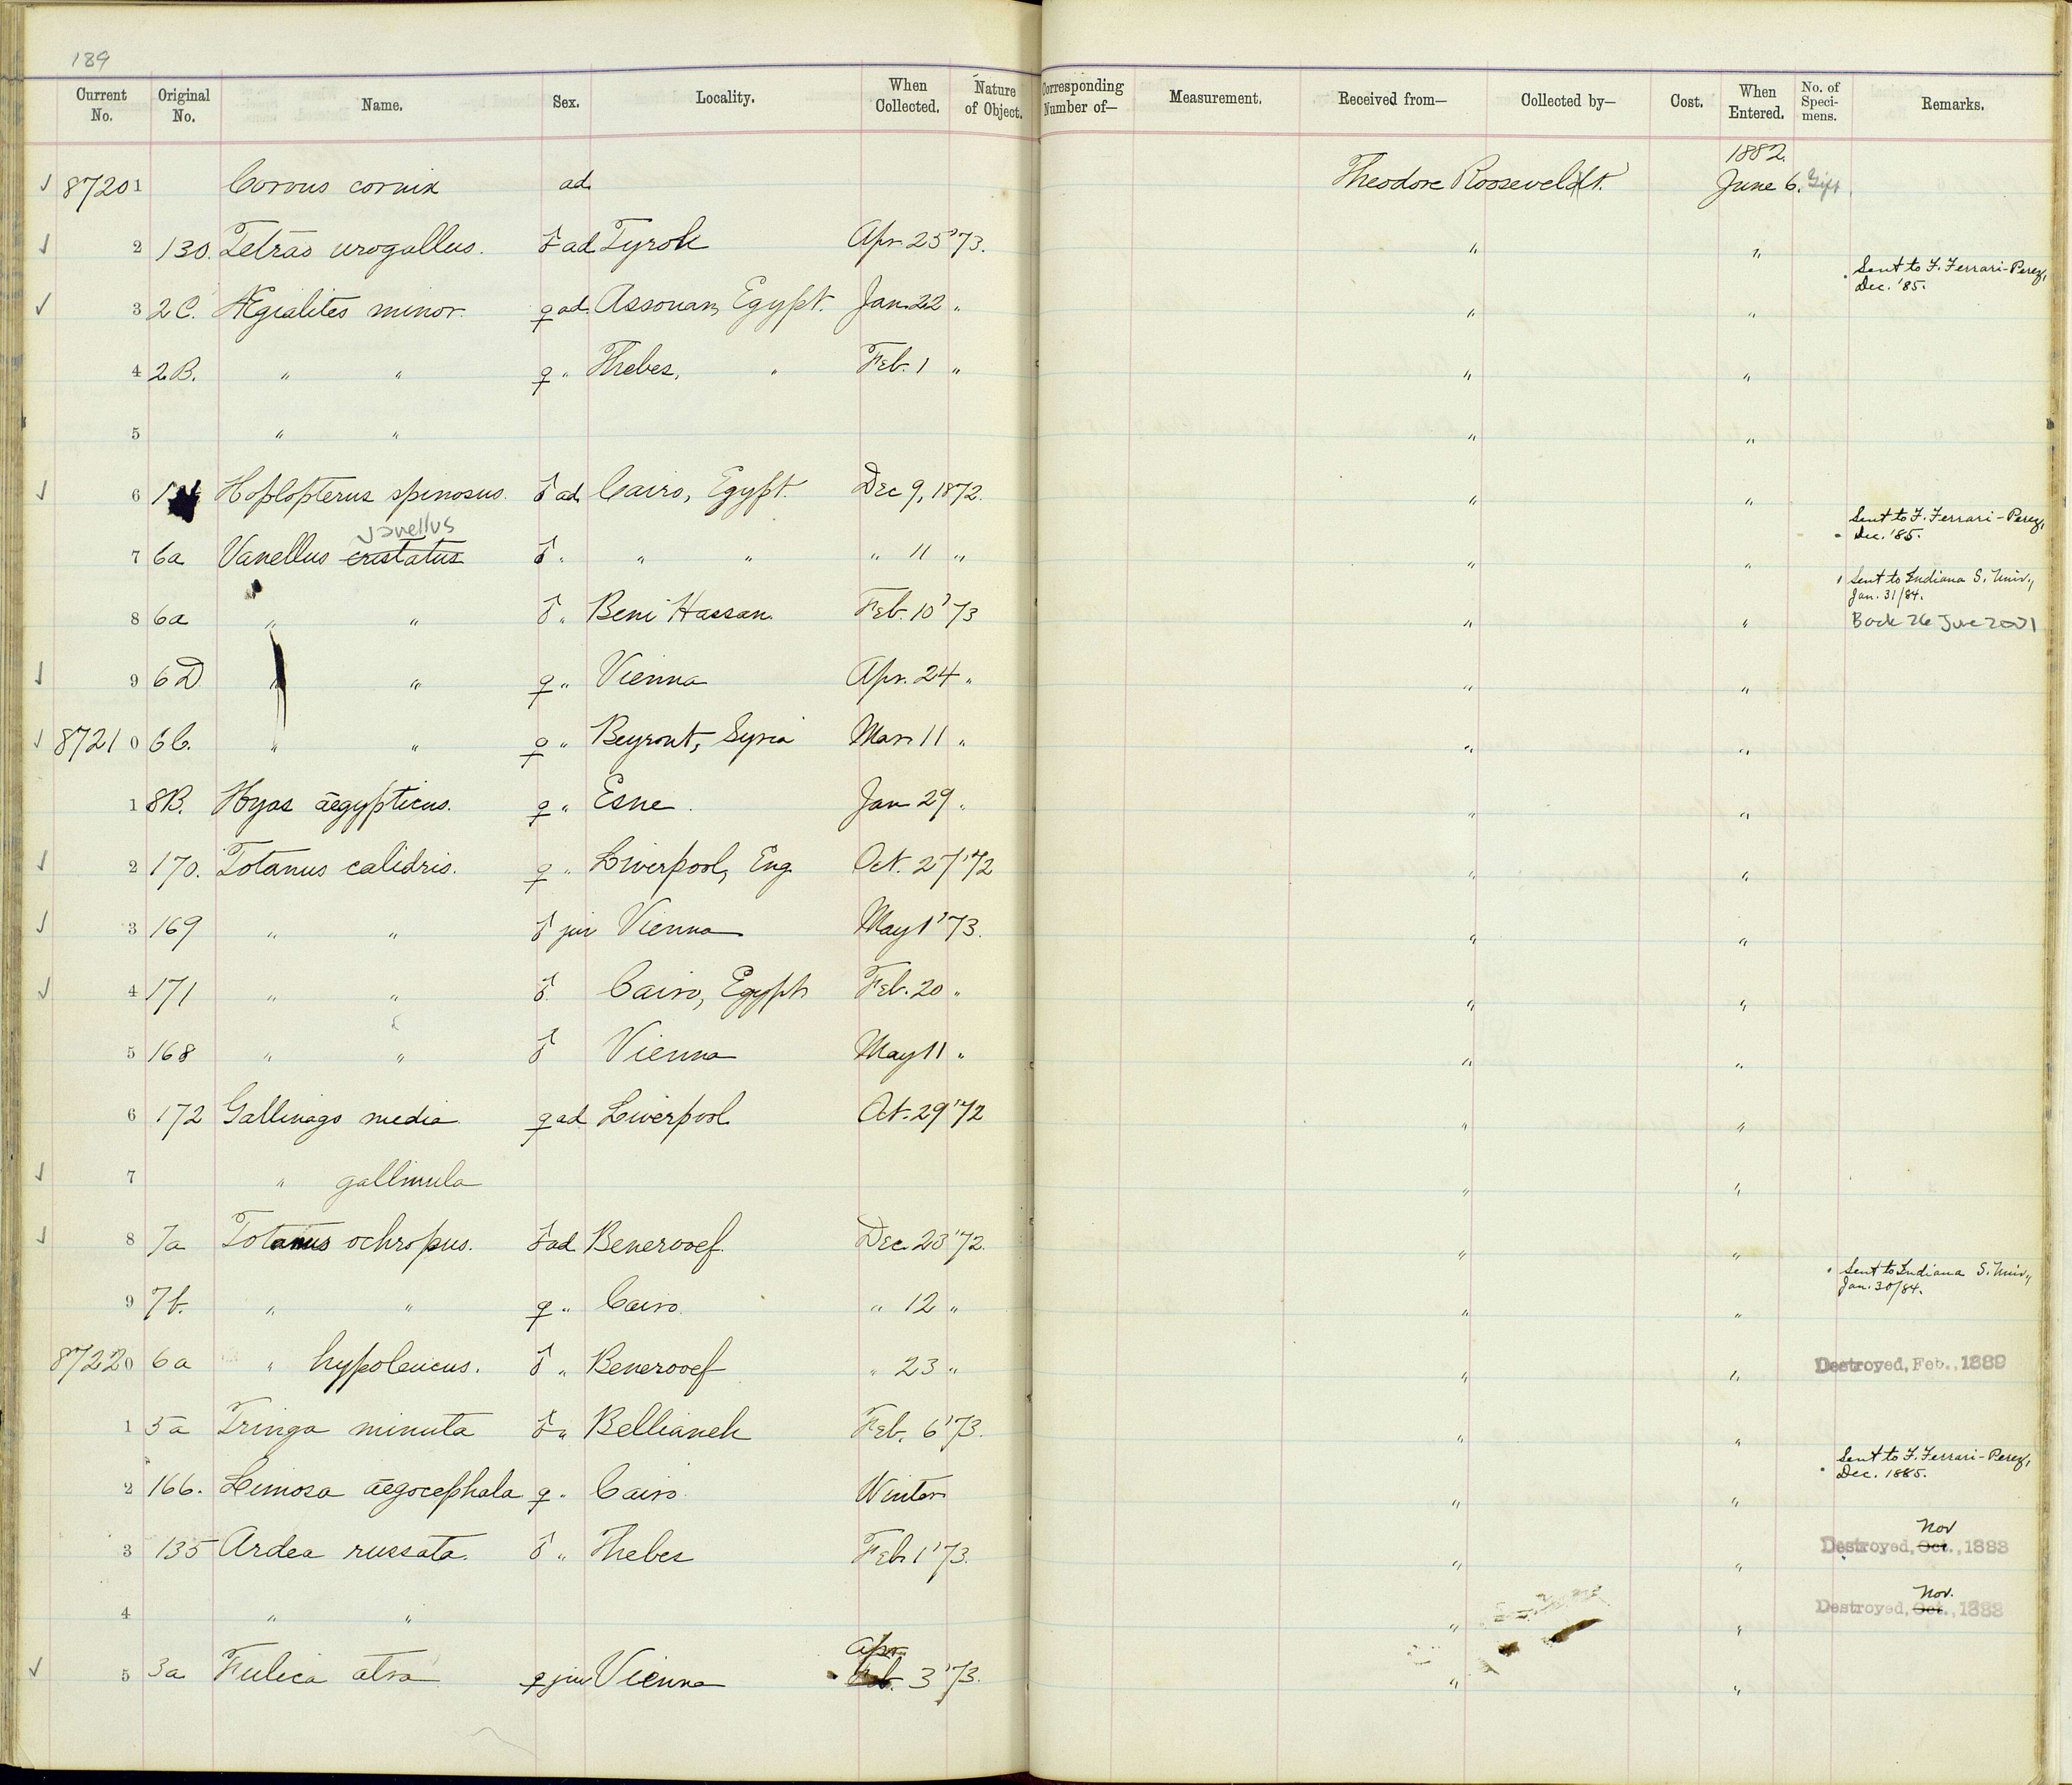 189
Current No. Original No. Name. Sex. Locality. When Collected. Nature of Object. Corresponding Number of— Measurement. Received from— Collected by— Cost. When Entered. No. of Specimens. Remarks.
1882.
87201 Corvus cornix ad. Theodore Roosevelt. June 6. Gift
2 130. Tetrao urogallus. ♂ ad Tyrol Apr. 25 '73. " "
Sent to F. Ferrari-Perez,
Dec. '85.
3 2C. Ægialites minor. ♀ ad. Assouan, Egypt. Jan. 22 " " "
4 2B. " " ♀ " Thebes, " Feb. 1 " " "
5 " " " "
6 Hoplopterus spinosus. ♂ ad. Cairo, Egypt. Dec 9, 1872. " "
vanellus
Sent to F. Ferrari-Perez,
Dec. '85.
7 6a Vanellus cristatus ♂ " " " " 11 " " "
Sent to Indiana S. Univ.,
Jan. 31/84.
8 6a " " ♂ " Beni Hassan. Feb. 10 '73 " " Back 26 June 2001
9 6D " " ♀ " Vienna Apr. 24 " " "
87210 6C. " " ♀ " Beyrout, Syria Mar 11 " " "
1 8B. Hyas ægypticus. ♀ " Esne. Jan 29 " " "
2 170. Totanus calidris. ♀ " Liverpool, Eng. Oct. 27 '72 " "
3 169 " " ♂ juv Vienna May 1 '73. " "
4 171 " " ♂ Cairo, Egypt Feb. 20 " " "
5 168 " " ♂ Vienna May 11 " " "
6 172 Gallinago media ♀ ad. Liverpool Oct. 29 '72 " "
7 " gallinula " "
8 7a Totanus ochropus. ♂ ad. Benerooef. Dec. 23 '72. " "
Sent to Indiana S. Univ.,
Jan. 30/84.
9 7b. " " ♀ " Cairo. " 12 " " "
87220 6a " hypoleucus. ♂ " Benerooef " 23 " " " Destroyed, Feb., 1889
1 5a Tringa minuta ♂ " Bellianeh Feb. 6 '73. " "
Sent to F. Ferrari-Perez,
Dec. 1885.
2 166. Limosa ægocephala ♀ " Cairo Winter " "
Nov
3 135 Ardea russata. ♂ " Thebes Feb. 1 '73. " " Destroyed, Oct., 1888
Nov.
4 " " " " Destroyed, Oct., 1888
Apr.
5 3a Fulica atra ♀ juv Vienna Feb. 3 '73. " "